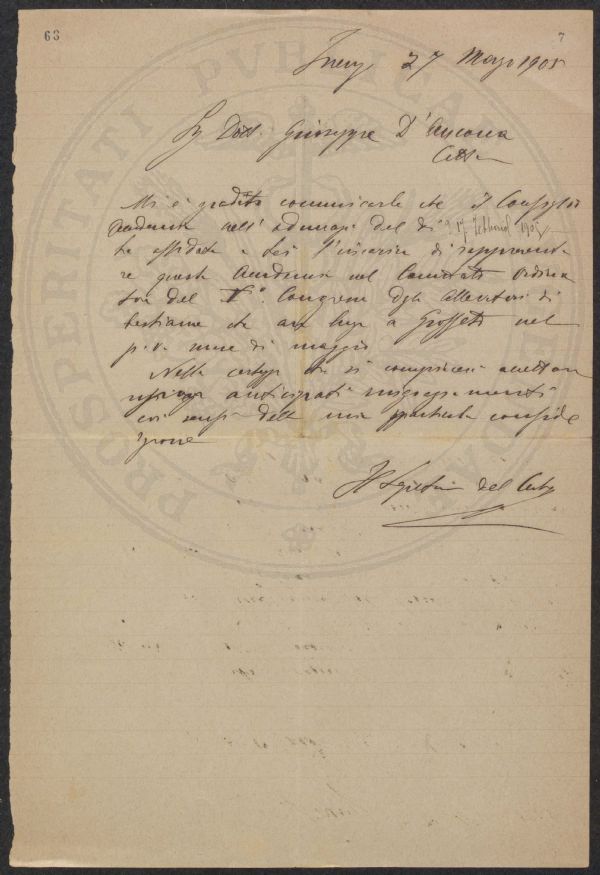 63
7
27 Marzo 1905
Sig Dott. Giuseppe D'Ancona
Città
Mi è gradito comunicarle che il Consiglio
nell' adunanza del dì 17 febbraio 1905
ha affidato a Lei l'incarico di rappresenta
re questa Accademia nel Comitato Ordina
tore del X° Congresso degli Allevatori di
bestiame che avrà luogo a Grosseto nel
p.v. mese di maggio
Nella certezza che si compiacerà accettare
anticipati ringraziamenti
coi sensi della mia particolare conside
zione
Il Segretario del
PROSPERITATI PUBLICAE